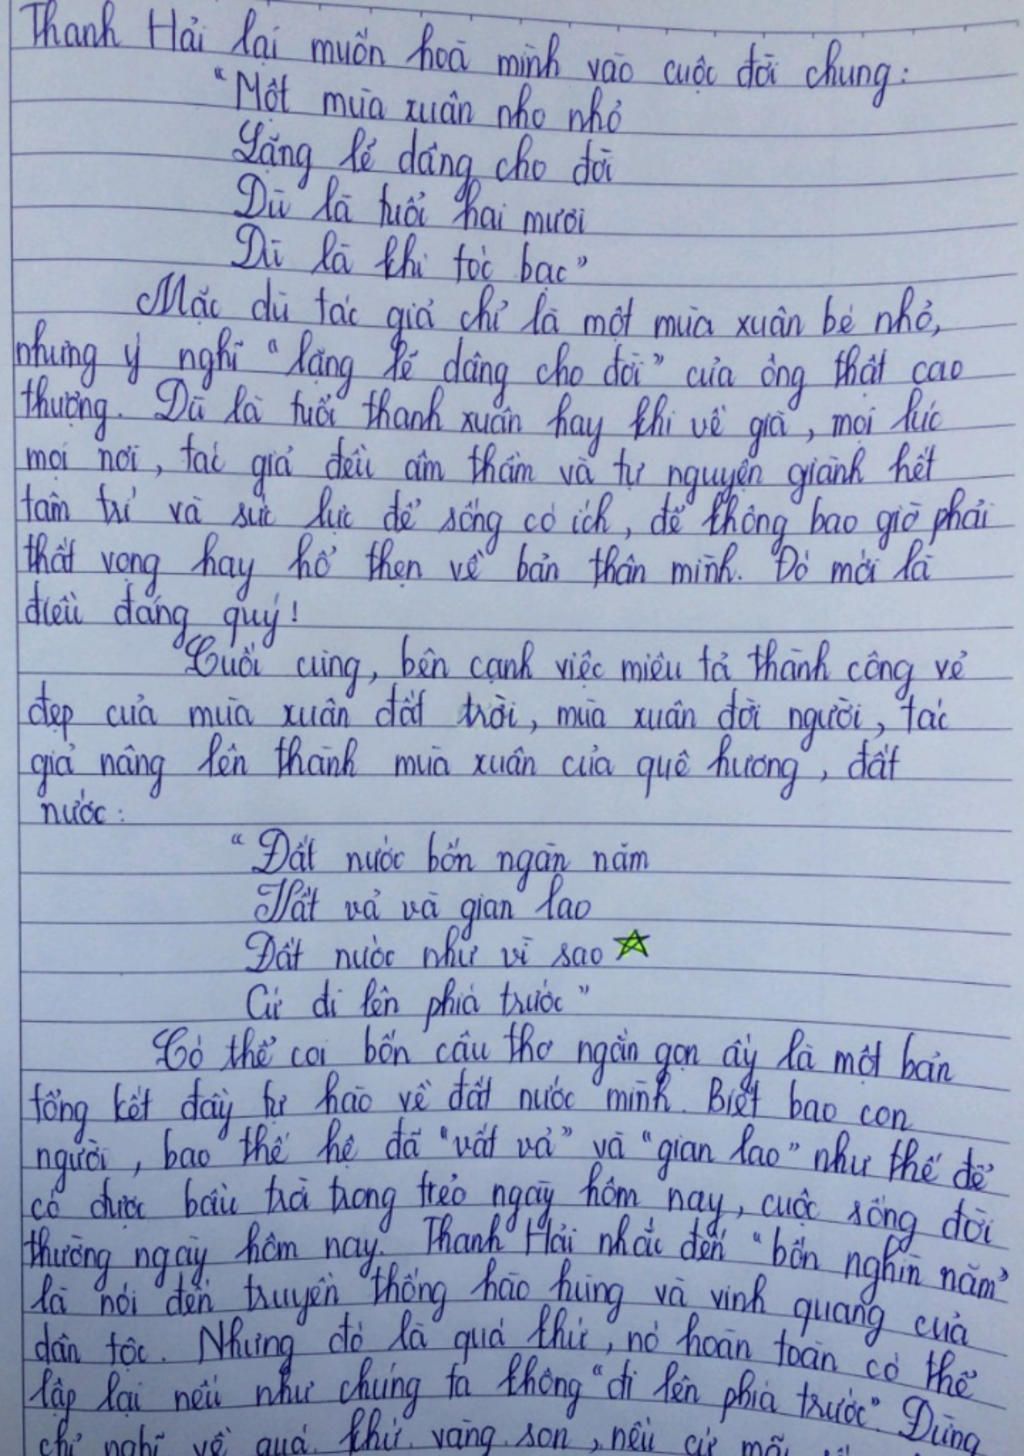 Thanh Hải lại muốn hoà mình vào cuộc đời chung:
"Một mùa xuân nho nhỏ
Lặng lẽ dâng cho đời
Dù là tuổi hai mươi
Dù là khi tóc bạc"
Mặc dù tác giả chỉ là một mùa xuân bé nhỏ,
nhưng ý nghĩ "lặng lẽ dâng cho đời" của ông thật cao
thượng. Dù là tuổi thanh xuân hay khi về già, mọi lúc
mọi nơi, tác giả đều âm thầm và tự nguyện giành hết
tâm trí và sức lực để sống có ích, để không bao giờ phải
thất vọng hay hổ thẹn về bản thân mình. Đó mới là
điều đáng quý!
Cuối cùng, bên cạnh việc miêu tả thành công vẻ
đẹp của mùa xuân đất trời, mùa xuân đời người, tác
giả nâng lên thành mùa xuân của quê hương, đất
nước:
"Đất nước bốn ngàn năm
Vất vả và gian lao
Đất nước như vì sao
Cứ đi lên phía trước"
Có thể coi bốn câu thơ ngắn gọn ấy là một bản
tổng kết đầy tự hào về đất nước mình. Biết bao con
người, bao thế hệ đã "vất vả" và "gian lao" như thế để
có được bầu trời trong trẻo ngày hôm nay, cuộc sống đời
thường ngày hôm nay. Thanh Hải nhắc đến "bốn nghìn năm"
là nói đến truyền thống hào hùng và vinh quang của
dân tộc. Nhưng đó là quá khứ, nó hoàn toàn có thể
lặp lại nếu như chúng ta không "đi lên phía trước". Đừng
chỉ nghĩ về quá khứ vàng son, nếu cứ mãi